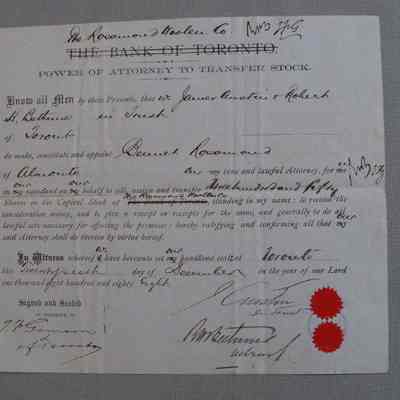 The Rosamond Woolen Co
THE BANK OF TORONTO,
POWER OF ATTORNEY TO TRANSFER STOCK.
Know all Men by these Presents, that we James Austin & Robert
H. Bethune in Trust
of Toronto
do make, constitute and appoint Bennet Rosamond
of Almonte our my true and lawful Attorney, for me
our our
in my name and on my behalf to sell, assign and transfer One hundred and fifty
The Rosamond Woolen Co
Shares in the Capital Stock of Bank of Toronto, standing in my name; to receive the
consideration money, and to give a receipt or receipts for the same, and generally to do all
lawful acts necessary for effecting the premises; hereby ratifying and confirming all that my our
said Attorney shall do therein by virtue hereof.
we our
In Witness whereof I have hereunto set my hand and seal at Toronto
the twenty sixth day of December in the year of our Lord
one thousand eight hundred and eighty Eight.
Signed and Sealed
IN PRESENCE OF
of Toronto
J Austin
In Trust
R H Bethune